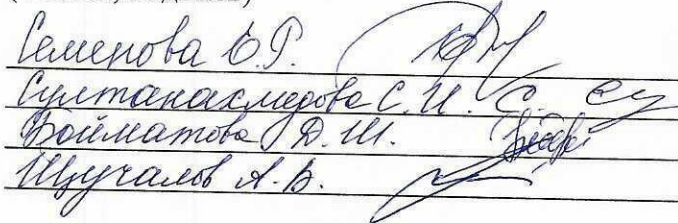 Семенова Ю.Р.
Султанахмедова С.И.
Бойматова Д.Ш.
Щучалов А.В.